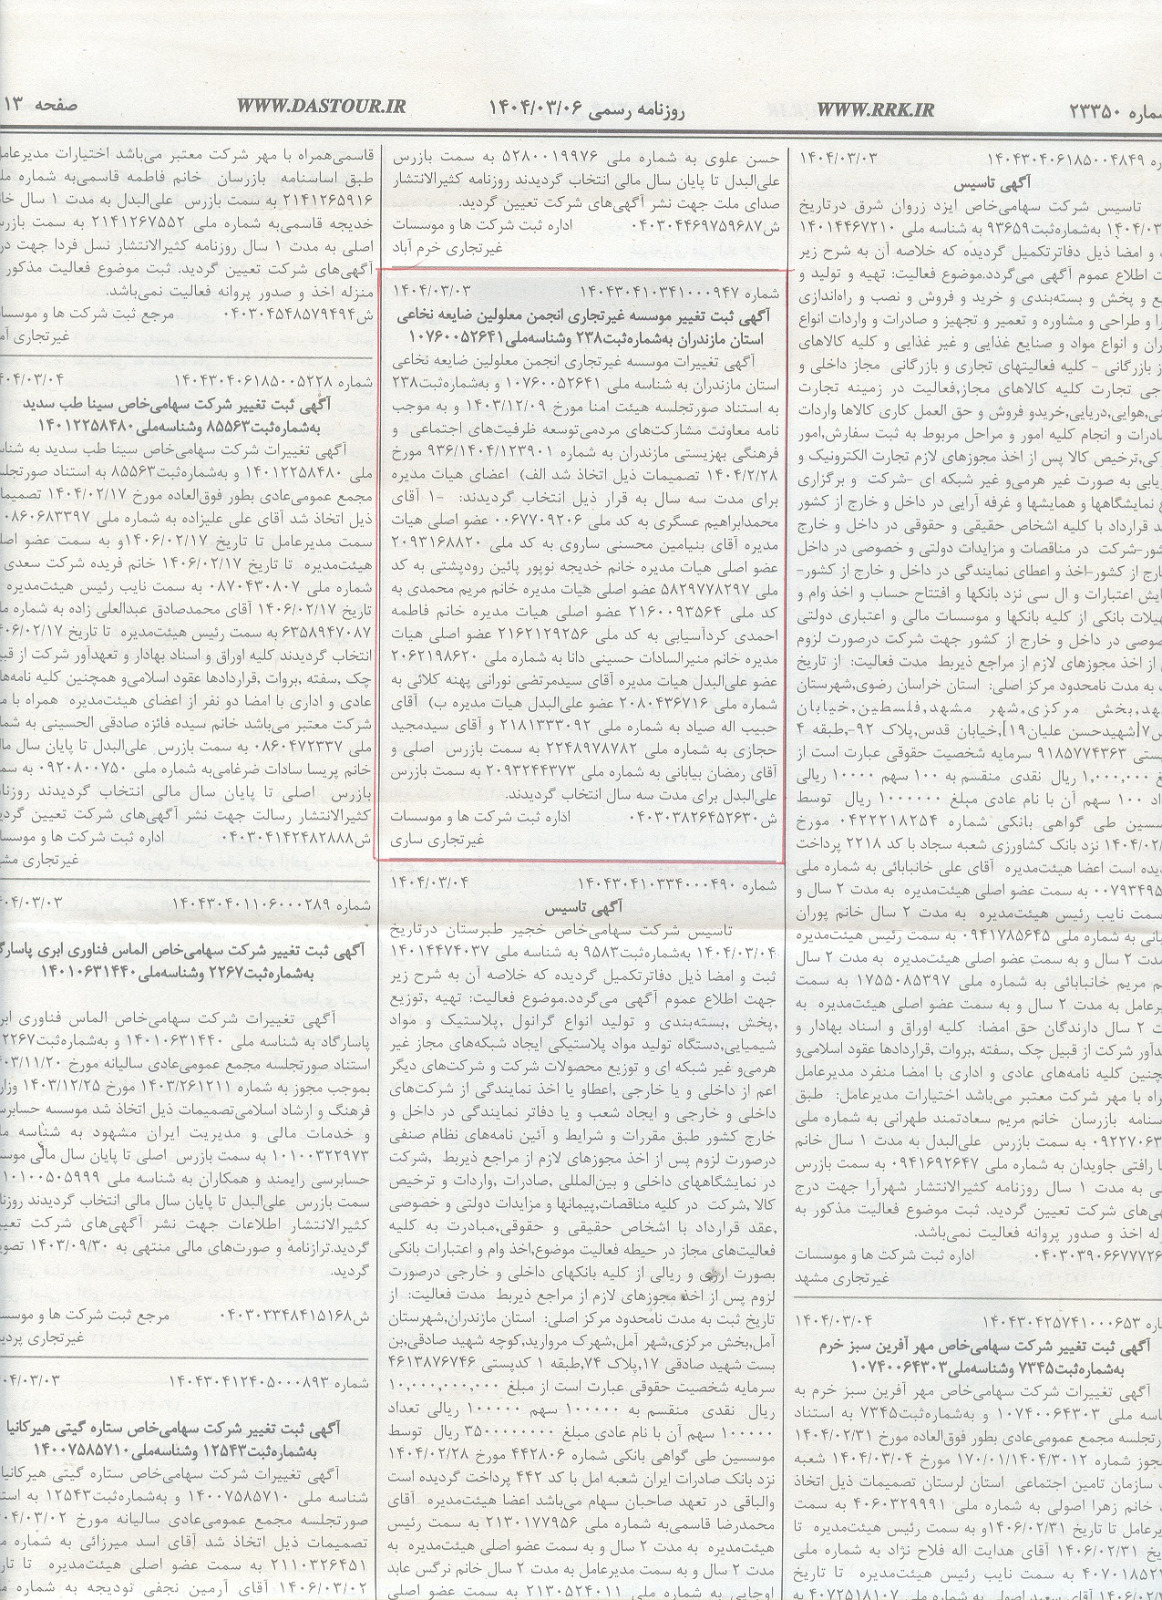 شماره ۲۳۳۵۰
WWW.RRK.IR
روزنامه رسمی ۱۴۰۴/۰۳/۰۶
WWW.DASTOUR.IR
صفحه ۱۳
۱۴۰۴۳۰۴۰۶۱۸۵۰۰۴۸۴۹ ۱۴۰۴/۰۳/۰۳
آگهی تاسیس
تاسیس شرکت سهامی‌خاص ایزد زروان شرق درتاریخ
به‌شماره‌ثبت۹۳۶۵۹ به شناسه ملی ۱۴۰۱۴۴۶۷۲۱۰
و امضا ذیل دفاترتکمیل گردیده که خلاصه آن به شرح زیر
ت اطلاع عموم آگهی می‌گردد.موضوع فعالیت: تهیه و تولید و
ع و پخش و بسته‌بندی و خرید و فروش و نصب و راه‌اندازی
را و طراحی و مشاوره و تعمیر و تجهیز و صادرات و واردات انواع
ران و انواع مواد و صنایع غذایی و غیر غذایی و کلیه کالاهای
ز بازرگانی - کلیه فعالیتهای تجاری و بازرگانی مجاز داخلی و
جی تجارت کلیه کالاهای مجاز,فعالیت در زمینه تجارت
نی,هوایی,دریایی,خریدو فروش و حق العمل کاری کالاها واردات
ادرات و انجام کلیه امور و مراحل مربوط به ثبت سفارش,امور
کی,ترخیص کالا پس از اخذ مجوزهای لازم تجارت الکترونیک و
ریابی به صورت غیر هرمی‌و غیر شبکه ای -شرکت و برگزاری
ع نمایشگاهها و همایشها و غرفه آرایی در داخل و خارج از کشور
ند قرارداد با کلیه اشخاص حقیقی و حقوقی در داخل و خارج
شور-شرکت در مناقصات و مزایدات دولتی و خصوصی در داخل
ارج از کشور-اخذ و اعطای نمایندگی در داخل و خارج از کشور-
ایش اعتبارات و ال سی نزد بانکها و افتتاح حساب و اخذ وام و
هیلات بانکی از کلیه بانکها و موسسات مالی و اعتباری دولتی
صوصی در داخل و خارج از کشور جهت شرکت درصورت لزوم
از اخذ مجوزهای لازم از مراجع ذیربط مدت فعالیت: از تاریخ
به مدت نامحدود مرکز اصلی: استان خراسان رضوی,شهرستان
هد,بخش مرکزی,شهر مشهد,فلسطین,خیابان
س۷[شهیدحسن علیان۱۹],خیابان قدس,پلاک ۹۲-,طبقه ۴
ستی ۹۱۸۵۷۷۴۳۶۳ سرمایه شخصیت حقوقی عبارت است از
غ ۱,۰۰۰,۰۰۰ ریال نقدی منقسم به ۱۰۰ سهم ۱۰۰۰۰ ریالی
اد ۱۰۰ سهم آن با نام عادی مبلغ ۱۰۰۰۰۰۰ ریال توسط
سسین طی گواهی بانکی شماره ۰۴۲۲۲۱۸۲۵۴ مورخ
نزد بانک کشاورزی شعبه سجاد با کد ۲۲۱۸ پرداخت
دیده است اعضا هیئت‌مدیره آقای علی خانبابائی به شماره ملی
به سمت عضو اصلی هیئت‌مدیره به مدت ۲ سال و
سمت نایب رئیس هیئت‌مدیره به مدت ۲ سال خانم پوران
بائی به شماره ملی ۰۹۴۱۷۸۵۶۴۵ به سمت رئیس هیئت‌مدیره
مدت ۲ سال و به سمت عضو اصلی هیئت‌مدیره به مدت ۲ سال
م مریم خانبابائی به شماره ملی ۱۷۵۵۰۸۵۳۹۷ به سمت
یرعامل به مدت ۲ سال و به سمت عضو اصلی هیئت‌مدیره به
ت ۲ سال دارندگان حق امضا: کلیه اوراق و اسناد بهادار و
دآور شرکت از قبیل چک ,سفته ,بروات ,قراردادها عقود اسلامی‌و
چنین کلیه نامه‌های عادی و اداری با امضا منفرد مدیرعامل
راه با مهر شرکت معتبر می‌باشد اختیارات مدیرعامل: طبق
سنامه بازرسان خانم مریم سعادتمند طهرانی به شماره ملی
به سمت بازرس علی‌البدل به مدت ۱ سال خانم
ا رافتی جاویدان به شماره ملی ۰۹۴۱۶۹۲۶۴۷ به سمت بازرس
ی به مدت ۱ سال روزنامه کثیرالانتشار شهرآرا جهت درج
هی‌های شرکت تعیین گردید. ثبت موضوع فعالیت مذکور به
له اخذ و صدور پروانه فعالیت نمی‌باشد.
اداره ثبت شرکت ها و موسسات
غیرتجاری مشهد
۱۴۰۴۳۰۴۲۵۷۴۱۰۰۰۶۵۳ ۱۴۰۴/۰۳/۰۴
آگهی ثبت تغییر شرکت سهامی‌خاص مهر آفرین سبز خرم
به‌شماره‌ثبت۷۳۴۵ وشناسه‌ملی۱۰۷۴۰۰۶۴۳۰۳
آگهی تغییرات شرکت سهامی‌خاص مهر آفرین سبز خرم به
سه ملی ۱۰۷۴۰۰۶۴۳۰۳ و به‌شماره‌ثبت۷۳۴۵ به استناد
رتجلسه مجمع عمومی‌عادی بطور فوق‌العاده مورخ ۱۴۰۴/۰۲/۳۱
جوز شماره ۱۷۰/۰۱/۱۴۰۴/۳۰۱۲ مورخ ۱۴۰۴/۰۳/۰۴ شعبه
سازمان تامین اجتماعی استان لرستان تصمیمات ذیل اتخاذ
خانم زهرا اصولی به شماره ملی ۴۰۶۰۳۲۹۹۹۱ به سمت
یرعامل تا تاریخ ۱۴۰۶/۰۲/۳۱و به سمت رئیس هیئت‌مدیره تا
یخ ۱۴۰۶/۰۲/۳۱ آقای هدایت اله فلاح نژاد به شماره ملی
به سمت نایب رئیس هیئت‌مدیره تا تاریخ
آقای سعید اصولی به شماره ملی ۴۰۷۲۵۱۸۱۰۷ به
حسن علوی به شماره ملی ۵۲۸۰۰۱۹۹۷۶ به سمت بازرس
علی‌البدل تا پایان سال مالی انتخاب گردیدند روزنامه کثیرالانتشار
صدای ملت جهت نشر آگهی‌های شرکت تعیین گردید.
ش۰۴۰۳۰۴۴۶۹۷۵۹۶۸۷ اداره ثبت شرکت ها و موسسات
غیرتجاری خرم آباد
شماره ۱۴۰۴۳۰۴۱۰۳۴۱۰۰۰۹۴۷ ۱۴۰۴/۰۳/۰۳
آگهی ثبت تغییر موسسه غیرتجاری انجمن معلولین ضایعه نخاعی
استان مازندران به‌شماره‌ثبت۲۳۸ وشناسه‌ملی۱۰۷۶۰۰۵۲۶۴۱
آگهی تغییرات موسسه غیرتجاری انجمن معلولین ضایعه نخاعی
استان مازندران به شناسه ملی ۱۰۷۶۰۰۵۲۶۴۱ و به‌شماره‌ثبت۲۳۸
به استناد صورتجلسه هیئت امنا مورخ ۱۴۰۳/۱۲/۰۹ و به موجب
نامه معاونت مشارکت‌های مردمی‌توسعه ظرفیت‌های اجتماعی و
فرهنگی بهزیستی مازندران به شماره ۹۳۶/۱۴۰۴/۱۲۳۹۰۱ مورخ
۱۴۰۴/۲/۲۸ تصمیمات ذیل اتخاذ شد الف) اعضای هیات مدیره
برای مدت سه سال به قرار ذیل انتخاب گردیدند: ۱- آقای
محمدابراهیم عسگری به کد ملی ۰۰۶۷۷۰۹۲۰۶ عضو اصلی هیات
مدیره آقای بنیامین محسنی ساروی به کد ملی ۲۰۹۳۱۶۸۸۲۰
عضو اصلی هیات مدیره خانم خدیجه نوپور پائین رودپشتی به کد
ملی ۵۸۲۹۷۷۸۲۹۷ عضو اصلی هیات مدیره خانم مریم محمدی به
کد ملی ۲۱۶۰۰۹۳۵۶۴ عضو اصلی هیات مدیره خانم فاطمه
احمدی کردآسیابی به کد ملی ۲۱۶۲۱۲۹۲۵۶ عضو اصلی هیات
مدیره خانم منیرالسادات حسینی دانا به شماره ملی ۲۰۶۲۱۹۸۶۲۰
عضو علی‌البدل هیات مدیره آقای سیدمرتضی نورانی پهنه کلائی به
شماره ملی ۲۰۸۰۴۳۶۷۱۶ عضو علی‌البدل هیات مدیره ب) آقای
حبیب اله صیاد به شماره ملی ۲۱۸۱۳۳۳۰۹۲ و آقای سیدمجید
حجازی به شماره ملی ۲۲۴۸۹۷۸۷۸۲ به سمت بازرس اصلی و
آقای رمضان بیابانی به شماره ملی ۲۰۹۳۲۴۴۳۷۳ به سمت بازرس
علی‌البدل برای مدت سه سال انتخاب گردیدند.
ش۰۴۰۳۰۳۸۲۶۴۵۲۶۳۰ اداره ثبت شرکت ها و موسسات
غیرتجاری ساری
شماره ۱۴۰۴۳۰۴۱۰۳۳۴۰۰۰۴۹۰ ۱۴۰۴/۰۳/۰۴
آگهی تاسیس
تاسیس شرکت سهامی‌خاص خجیر طبرستان درتاریخ
۱۴۰۴/۰۳/۰۴ به‌شماره‌ثبت۹۵۸۳ به شناسه ملی ۱۴۰۱۴۴۷۴۰۳۷
ثبت و امضا ذیل دفاترتکمیل گردیده که خلاصه آن به شرح زیر
جهت اطلاع عموم آگهی می‌گردد.موضوع فعالیت: تهیه ,توزیع
,پخش ,بسته‌بندی و تولید انواع گرانول ,پلاستیک و مواد
شیمیایی,دستگاه تولید مواد پلاستیکی ایجاد شبکه‌های مجاز غیر
هرمی‌و غیر شبکه ای و توزیع محصولات شرکت و شرکت‌های دیگر
اعم از داخلی و یا خارجی ,اعطاو یا اخذ نمایندگی از شرکت‌های
داخلی و خارجی و ایجاد شعب و یا دفاتر نمایندگی در داخل و
خارج کشور طبق مقررات و شرایط و آئین نامه‌های نظام صنفی
درصورت لزوم پس از اخذ مجوزهای لازم از مراجع ذیربط ,شرکت
در نمایشگاههای داخلی و بین‌المللی ,صادرات ,واردات و ترخیص
کالا ,شرکت در کلیه مناقصات,پیمانها و مزایدات دولتی و خصوصی
,عقد قرارداد با اشخاص حقیقی و حقوقی,مبادرت به کلیه
فعالیت‌های مجاز در حیطه فعالیت موضوع,اخذ وام و اعتبارات بانکی
بصورت ارزی و ریالی از کلیه بانکهای داخلی و خارجی درصورت
لزوم پس از اخذ مجوزهای لازم از مراجع ذیربط مدت فعالیت: از
تاریخ ثبت به مدت نامحدود مرکز اصلی: استان مازندران,شهرستان
آمل,بخش مرکزی,شهر آمل,شهرک مروارید,کوچه شهید صادقی,بن
بست شهید صادقی ۱۷,پلاک ۷۴,طبقه ۱ کدپستی ۴۶۱۳۸۷۶۷۴۶
سرمایه شخصیت حقوقی عبارت است از مبلغ ۱۰,۰۰۰,۰۰۰,۰۰۰
ریال نقدی منقسم به ۱۰۰۰۰۰ سهم ۱۰۰۰۰۰ ریالی تعداد
۱۰۰۰۰۰ سهم آن با نام عادی مبلغ ۳۵۰۰۰۰۰۰۰۰ ریال توسط
موسسین طی گواهی بانکی شماره ۴۴۲۸۰۶ مورخ ۱۴۰۴/۰۲/۲۸
نزد بانک صادرات ایران شعبه امل با کد ۴۴۲ پرداخت گردیده است
والباقی در تعهد صاحبان سهام می‌باشد اعضا هیئت‌مدیره آقای
محمدرضا قاسمی‌به شماره ملی ۲۱۳۰۱۷۷۹۵۶ به سمت رئیس
هیئت‌مدیره به مدت ۲ سال و به سمت عضو اصلی هیئت‌مدیره به
مدت ۲ سال و به سمت مدیرعامل به مدت ۲ سال خانم نرگس عابد
اوجایی به شماره ملی ۲۱۳۰۵۲۴۰۱۱ به سمت عضو اصلی
قاسمی‌همراه با مهر شرکت معتبر می‌باشد اختیارات مدیرعامل
طبق اساسنامه بازرسان خانم فاطمه قاسمی‌به شماره ملی
۲۱۴۱۲۶۵۹۱۶ به سمت بازرس علی‌البدل به مدت ۱ سال خانم
خدیجه قاسمی‌به شماره ملی ۲۱۴۱۲۶۷۵۵۲ به سمت بازرس
اصلی به مدت ۱ سال روزنامه کثیرالانتشار نسل فردا جهت درج
آگهی‌های شرکت تعیین گردید. ثبت موضوع فعالیت مذکور
منزله اخذ و صدور پروانه فعالیت نمی‌باشد.
ش۰۴۰۳۰۴۵۴۸۵۷۹۴۹۴ مرجع ثبت شرکت ها و موسسات
غیرتجاری
شماره ۱۴۰۴۳۰۴۰۶۱۸۵۰۰۵۲۲۸
آگهی ثبت تغییر شرکت سهامی‌خاص سینا طب سدید
به‌شماره‌ثبت۸۵۵۶۳ وشناسه‌ملی۱۴۰۱۲۲۵۸۴۸۰
آگهی تغییرات شرکت سهامی‌خاص سینا طب سدید به شناسه
ملی ۱۴۰۱۲۲۵۸۴۸۰ و به‌شماره‌ثبت۸۵۵۶۳ به استناد صورتجلسه
مجمع عمومی‌عادی بطور فوق‌العاده مورخ ۱۴۰۴/۰۲/۱۷ تصمیمات
ذیل اتخاذ شد آقای علی علیزاده به شماره ملی ۰۸۶۰۶۸۳۳۹۷
سمت مدیرعامل تا تاریخ ۱۴۰۶/۰۲/۱۷و به سمت عضو اصلی
هیئت‌مدیره تا تاریخ ۱۴۰۶/۰۲/۱۷ خانم فریده شرکت سعدی
شماره ملی ۰۸۷۰۴۳۰۸۰۷ به سمت نایب رئیس هیئت‌مدیره
تاریخ ۱۴۰۶/۰۲/۱۷ آقای محمدصادق عبدالعلی زاده به شماره ملی
۶۳۵۸۹۴۷۰۸۷ به سمت رئیس هیئت‌مدیره تا تاریخ
انتخاب گردیدند کلیه اوراق و اسناد بهادار و تعهدآور شرکت از قبیل
چک ,سفته ,بروات ,قراردادها عقود اسلامی‌و همچنین کلیه نامه‌های
عادی و اداری با امضا دو نفر از اعضای هیئت‌مدیره همراه با مهر
شرکت معتبر می‌باشد خانم سیده فائزه صادقی الحسینی به شماره
ملی ۰۸۶۰۴۷۲۳۳۷ به سمت بازرس علی‌البدل تا پایان سال مالی
خانم پریسا سادات ضرغامی‌به شماره ملی ۰۹۲۰۸۰۰۷۵۰ به سمت
بازرس اصلی تا پایان سال مالی انتخاب گردیدند روزنامه
کثیرالانتشار رسالت جهت نشر آگهی‌های شرکت تعیین گردید.
ش۰۴۰۳۰۴۱۴۲۴۸۲۸۸۸ اداره ثبت شرکت ها و موسسات
غیرتجاری
شماره ۱۴۰۴۳۰۴۰۱۱۰۶۰۰۰۲۸۹
آگهی ثبت تغییر شرکت سهامی‌خاص الماس فناوری ابری پاسارگاد
به‌شماره‌ثبت۲۲۶۷ وشناسه‌ملی۱۴۰۱۰۶۳۱۴۴۰
آگهی تغییرات شرکت سهامی‌خاص الماس فناوری ابری
پاسارگاد به شناسه ملی ۱۴۰۱۰۶۳۱۴۴۰ و به‌شماره‌ثبت۲۲۶۷
استناد صورتجلسه مجمع عمومی‌عادی سالیانه مورخ
بموجب مجوز به شماره ۱۴۰۳/۲۶۱۲۱۱ مورخ ۱۴۰۳/۱۲/۲۵
فرهنگ و ارشاد اسلامی‌تصمیمات ذیل اتخاذ شد موسسه حسابرسی
و خدمات مالی و مدیریت ایران مشهود به شناسه ملی
۱۰۱۰۰۳۲۲۹۷۳ به سمت بازرس اصلی تا پایان سال مالی موسسه
حسابرسی رایمند و همکاران به شناسه ملی ۱۰۱۰۰۵۰۵۹۹۹
سمت بازرس علی‌البدل تا پایان سال مالی انتخاب گردیدند روزنامه
کثیرالانتشار اطلاعات جهت نشر آگهی‌های شرکت تعیین
گردید.ترازنامه و صورت‌های مالی منتهی به ۱۴۰۳/۰۹/۳۰ تصویب
گردید.
ش۰۴۰۳۰۳۳۴۸۴۱۵۱۶۸ مرجع ثبت شرکت ها و موسسات
غیرتجاری
شماره ۱۴۰۴۳۰۴۱۲۴۰۵۰۰۰۸۹۳
آگهی ثبت تغییر شرکت سهامی‌خاص ستاره گیتی هیرکانیا
به‌شماره‌ثبت۱۲۵۴۳ وشناسه‌ملی۱۴۰۰۷۵۸۵۷۱۰
آگهی تغییرات شرکت سهامی‌خاص ستاره گیتی هیرکانیا
شناسه ملی ۱۴۰۰۷۵۸۵۷۱۰ و به‌شماره‌ثبت۱۲۵۴۳ به استناد
صورتجلسه مجمع عمومی‌عادی سالیانه مورخ
تصمیمات ذیل اتخاذ شد آقای اسد میرزائی به شماره
۲۱۱۰۳۲۶۴۵۱ به سمت عضو اصلی هیئت‌مدیره تا تاریخ
۱۴۰۶/۰۳/۰۲ آقای آرمین نجفی تودیجه به شماره